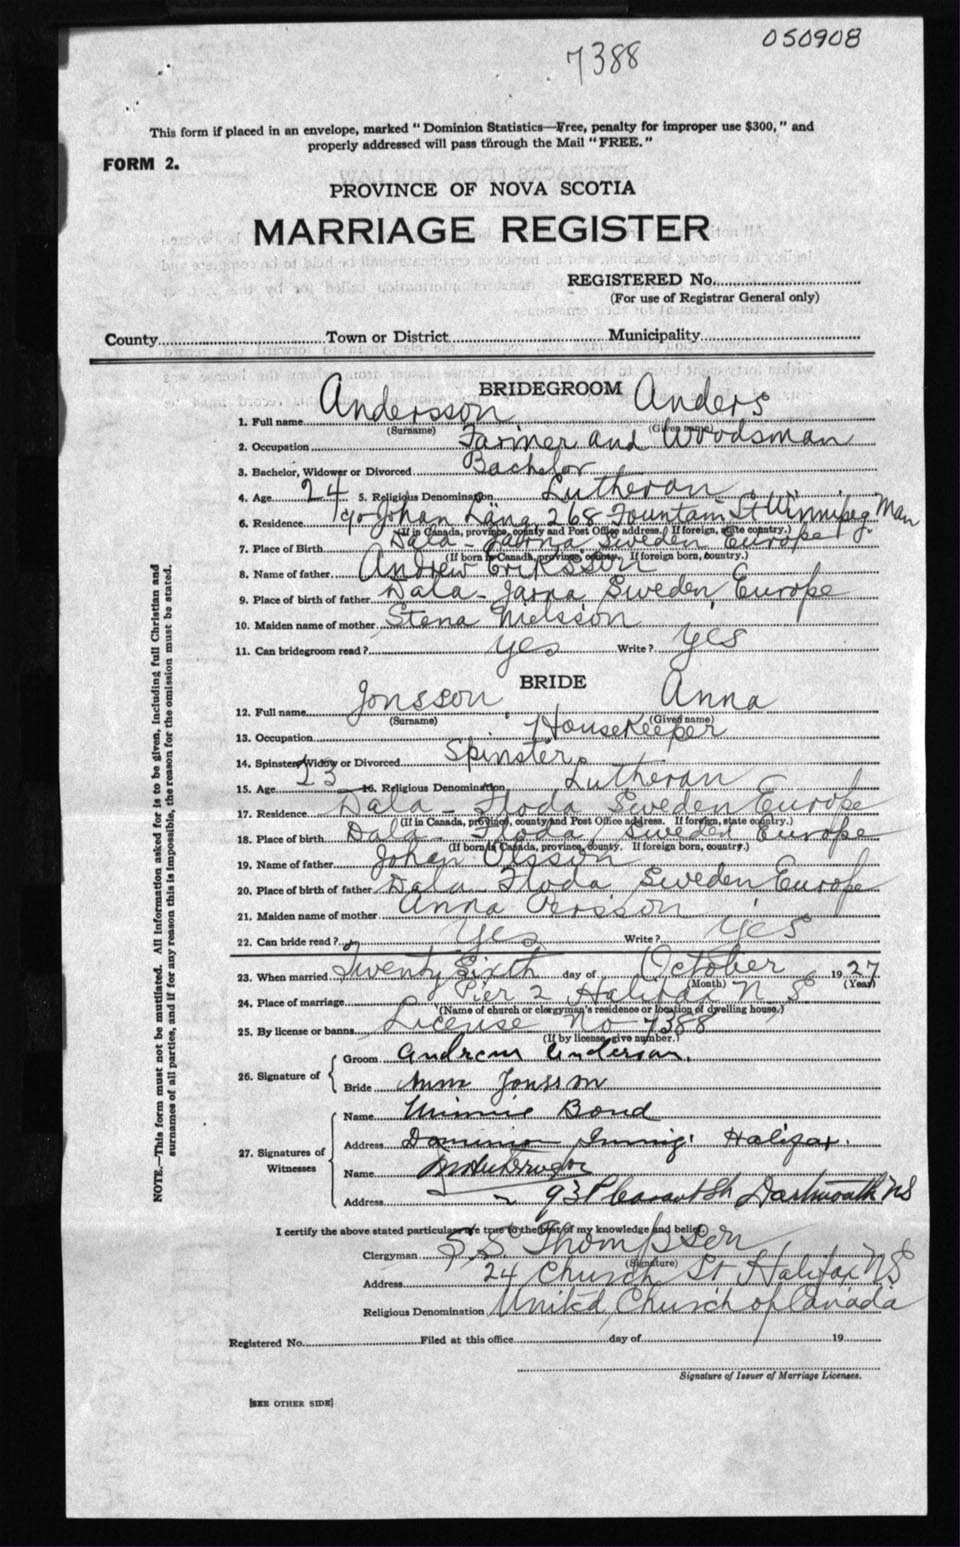 050908
7388
This form if placed in an envelope, marked "Dominion Statistics—Free, penalty for improper use $300," and
properly addressed will pass through the Mail "FREE."
FORM 2.
PROVINCE OF NOVA SCOTIA
MARRIAGE REGISTER
REGISTERED No.
(For use of Registrar General only)
County Town or District Municipality
BRIDEGROOM
1. Full name Andersson Anders
(Surname) (Given name)
2. Occupation Farmer and Woodsman
3. Bachelor, Widower or Divorced Bachelor
4. Age 24 5. Religious Denomination Lutheran
6. Residence c/o Johan Läng 268 Fountain St Winnipeg Man
(If in Canada, province, county and Post Office address. If foreign, state country.)
7. Place of Birth Dala - Jarna Sweden Europe
(If born in Canada, province, county. If foreign born, country.)
8. Name of father Andrew Eriksson
9. Place of birth of father Dala - Jarna Sweden Europe
10. Maiden name of mother Stena Nielsson
11. Can bridegroom read? yes Write? yes
BRIDE
12. Full name Jonsson Anna
(Surname) (Given name)
13. Occupation Housekeeper
14. Spinster, Widow or Divorced Spinster
15. Age 23 16. Religious Denomination Lutheran
17. Residence Dala - Floda Sweden Europe
(If in Canada, province, county and Post Office address. If foreign, state country.)
18. Place of birth Dala - Floda Sweden Europe
(If born in Canada, province, county. If foreign born, country.)
19. Name of father Johan Olsson
20. Place of birth of father Dala Floda Sweden Europe
21. Maiden name of mother Anna Persson
22. Can bride read? yes Write? yes
23. When married Twenty Sixth day of October 1927
(Month) (Year)
24. Place of marriage Pier 2 Halifax N S
(Name of church or clergyman's residence or location of dwelling house.)
25. By license or banns License No 7388
(If by license, give number.)
26. Signature of
Groom Andrew Anderson.
Bride Jonsson
27. Signatures of Witnesses
Name Minnie Bond
Address Dominion Immig. Halifax.
Name
Address 93 Pleasant St Dartmouth NS
I certify the above stated particulars are true to the best of my knowledge and belief.
Clergyman S S Thompson
(Signature)
Address 24 Church St Halifax NS
Religious Denomination United Church of Canada
Registered No. Filed at this office day of 19
Signature of Issuer of Marriage Licenses.
[SEE OTHER SIDE]
NOTE.—This form must not be mutilated. All information asked for is to be given, including full Christian and
surnames of all parties, and if for any reason this is impossible, the reason for the omission must be stated.